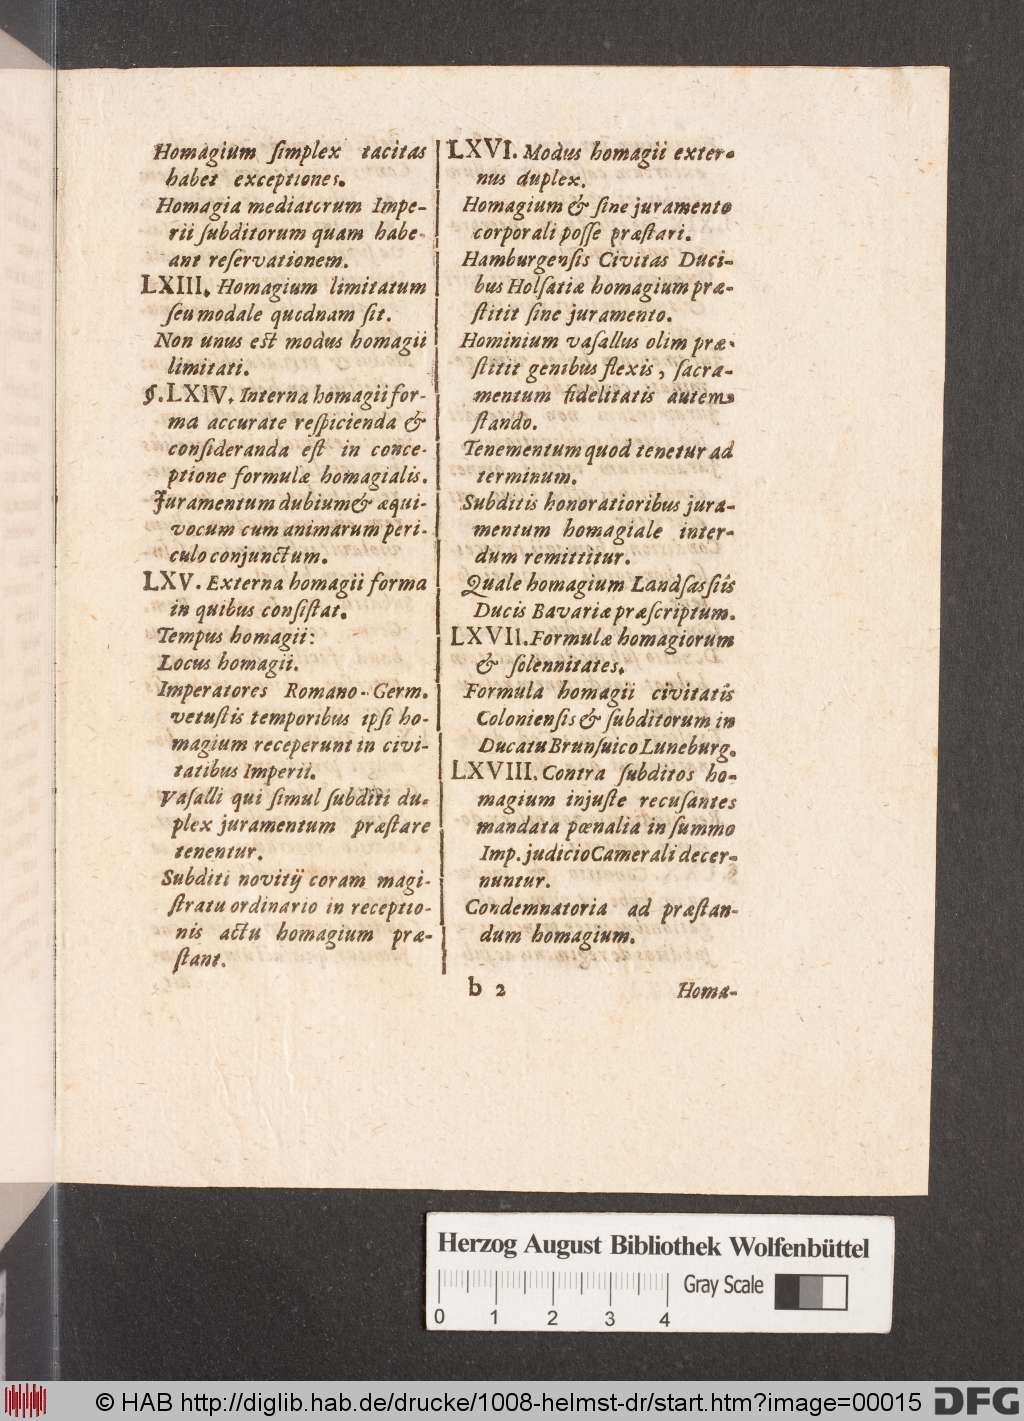 Homagium ſimplex tacitas
habet exceptiones.
Homagia mediatorum Impe-
rii ſubditorum quam habe-
ant reſervationem.
LXIII. Homagium limitatum
ſeu modale quodnam ſit.
Non unus eſt modus homagii
limitati.
§. LXIV. Interna homagii for-
ma accurate reſpicienda &
conſideranda eſt in conce-
ptione formulæ homagialis.
Juramentum dubium & æqui-
vocum cum animarum peri-
culo conjunctum.
LXV. Externa homagii forma
in quibus conſiſtat.
Tempus homagii:
Locus homagii.
Imperatores Romano-Germ.
vetuſtis temporibus ipſi ho-
magium receperunt in civi-
tatibus Imperii.
Vaſalli qui ſimul ſubditi du-
plex juramentum præſtare
tenentur.
Subditi novitij coram magi-
ſtratu ordinario in receptio-
nis actu homagium præ-
ſtant.
LXVI. Modus homagii exter-
nus duplex.
Homagium & ſine juramento
corporali poſſe præſtari.
Hamburgenſis Civitas Duci-
bus Holſatiæ homagium præ-
ſtitit ſine juramento.
Hominium vaſallus olim præ-
ſtitit genibus flexis, ſacra-
mentum fidelitatis autem
ſtando.
Tenementum quod tenetur ad
terminum.
Subditis honoratioribus jura-
mentum homagiale inter-
dum remittitur.
Quale homagium Landſasſiis
Ducis Bavariæ præſcriptum.
LXVII. Formulæ homagiorum
& ſolennitates.
Formula homagii civitatis
Colonienſis & ſubditorum in
Ducatu Brunſuico Luneburg.
LXVIII. Contra ſubditos ho-
magium injuſte recuſantes
mandata pœnalia in ſummo
Imp. judicio Camerali decer-
nuntur.
Condemnatoria ad præſtan-
dum homagium.
b 2 Homa-
Herzog August Bibliothek Wolfenbüttel
0 1 2 3 4 Gray Scale
© HAB http://diglib.hab.de/drucke/1008-helmst-dr/start.htm?image=00015 DFG